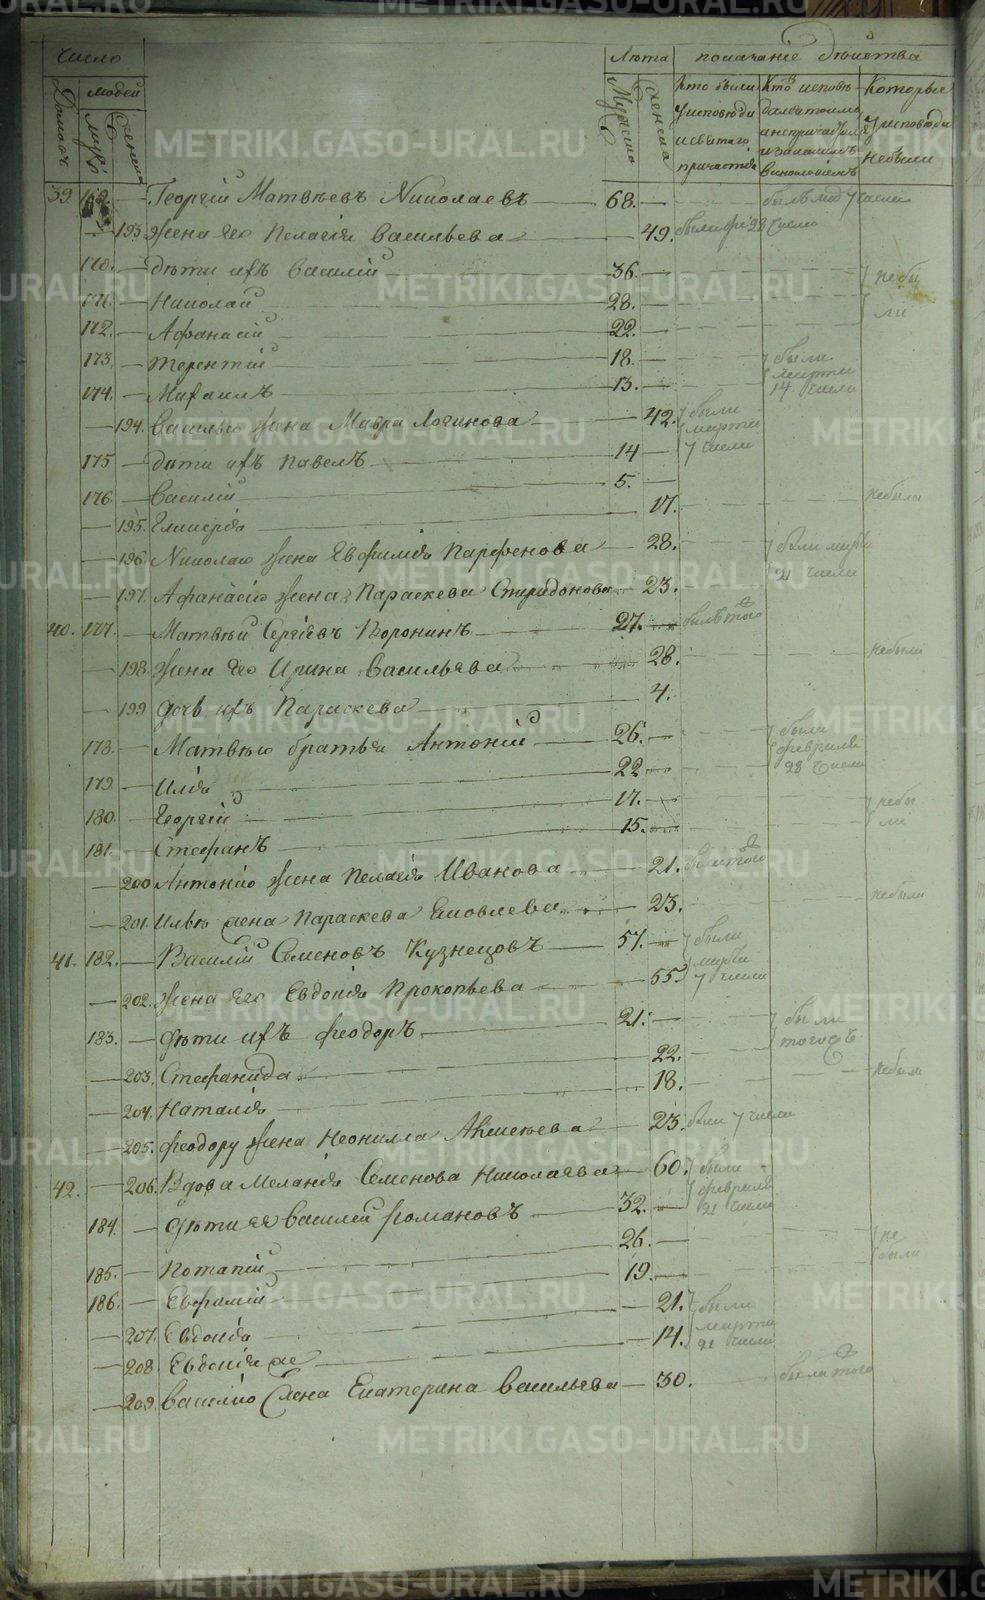 Число
Лѣта показаніе дѣйства
людей
Домовъ
Мужс
женска
Мужска
женска
Кто были у исповѣди и святаго причастія
Которые у исповѣди небыли
39 169. — Георгій Матвѣевъ Николаевъ — 68. —
— 193. жена его Пелагія Васильева — 49. были 28 числа
170. — дѣти ихъ Василій — 36. — небы
171. — Николай — 28. — ли
172. — Афанасій — 22. —
173. — Терентій — 18. — были
174. — Михаилъ — 13. — марта 14 числа
— 194. Василью жена Мавра Логинова — 42. были марта
175 — дѣти ихъ Павелъ — 14 — 7 числа
176. — Василій — 5. — небыли
— 195. Гликерія — 17.
— 196. Николаю жена Евфимія Парфенова — 28. были марта
— 197. Афанасію жена Параскева Спиридонова — 23. 21 числа
40. 177. — Матвѣй Сергіевъ Воронинъ — 27. —
— 198. жена его Ирина Васильева — 28. небыли
— 199 дочь ихъ Параскева — 4.
178. — Матвѣю братья Антоній — 26. — были февраля
179. — Илія — 22 — 28 числа
180. — Георгій — 17. — небы
181. — Стефанъ — 15. — ли
— 200 Антонію жена Пелагія Иванова — 21.
— 201. Ильѣ жена Параскева Яковлева — 23. небыли
41. 182. — Василій Семеновъ Кузнецовъ — 57. — были марта
— 202. жена его Евдокія Прокопьева — 55. 7 числа
183. — дѣти ихъ Феодоръ — 21. — были
— 203. Стефанида — 22.
— 204. Наталія — 18. небыли
— 205. Феодору жена Неонилла Алексѣева — 23. были 7 числа
42. — 206. Вдова Меланія Семенова Николаева — 60. были февраля
184. — дѣти ея Василій Романовъ — 32. — 21 числа
185. — Потапій — 26. — не
186. — Евфимій — 19. — были
— 207. Евдокія — 21. были марта
— 208. Евдокія же — 14. 21 числа
— 209. Василію жена Екатерина Васильева — 30.
METRIKI.GASO-URAL.RU